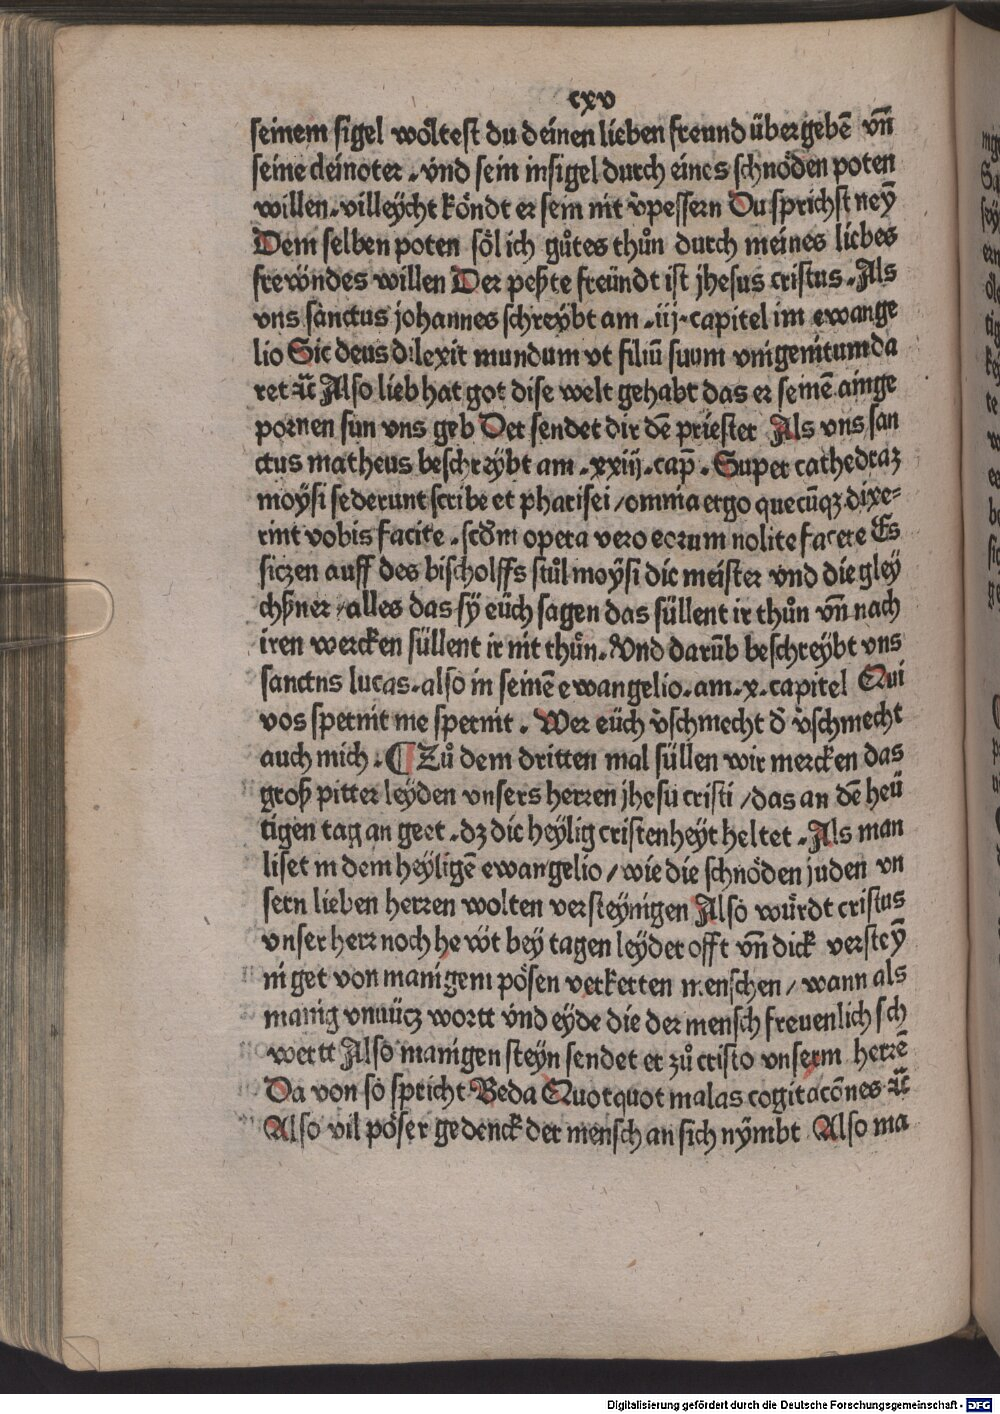 cxv
seinem sigel wöltest du deinen lieben freund übergebē vñ
seine cleinoter . vnd sein insigel durch eines schnöden poten
willen . villeycht köndt er sein nit v̓pessern Du sprichst neȳ
Dem selben poten söl ich gůtes thůn durch meines liebes
frewndes willen Der peßte freündt ist jhesus cristus . Als
vns sanctus johannes schreybt am . iij . capitel im ewange
lio Sic deus dilexit mundum vt filiū suum vnigenitum da
ret ꝛc̄ Also lieb hat got dise welt gehabt das er seinē ainge
pornen sun vns geb Der sendet dir dē priester Als vns san
ctus matheus beschreybt am . xxiij . cap̄ . Super cathedraz
moysi sederunt scribe et pharisei / omnia ergo quecūqz dixe⸗
rint vobis facite . scd̄m opera vero eorum nolite facere Es
siczen auff des bischolffs stůl moysi die meister vnd die gley
chßner / alles das sy eüch sagen das süllent ir thůn vñ nach
iren wercken süllent ir nit thůn . Vnd darūb beschreybt vns
sanctns lucas . also in seinē ewangelio . am . x . capitel Qui
vos spernit me spernit . Wer eüch v̓schmecht d̓ v̓schmecht
auch mich . ¶ Zů dem dritten mal süllen wir mercken das
groß pitter leyden vnsers herren jhesu cristi / das an dē heü
tigen tag an geet . dz die heylig cristenheyt heltet . Als man
liset in dem heyligē ewangelio / wie die schnöden juden vn
sern lieben herren wolten versteynigen Also würdt cristus
vnser herr noch hewt bey tagen leyder offt vñ dick versteȳ
niget von manigem pösen verkerten menschen / wann als
manig vnnücz wortt vnd eyde die der mensch freuenlich sch
wertt Also manigen steyn sendet er zů cristo vnserm herrē
Da von so spricht Beda Quotquot malas cogitacōnes ꝛc̄
Also vil pöser gedenck der mensch an sich nymbt Also ma
Digitalisierung gefördert durch die Deutsche Forschungsgemeinschaft - DFG